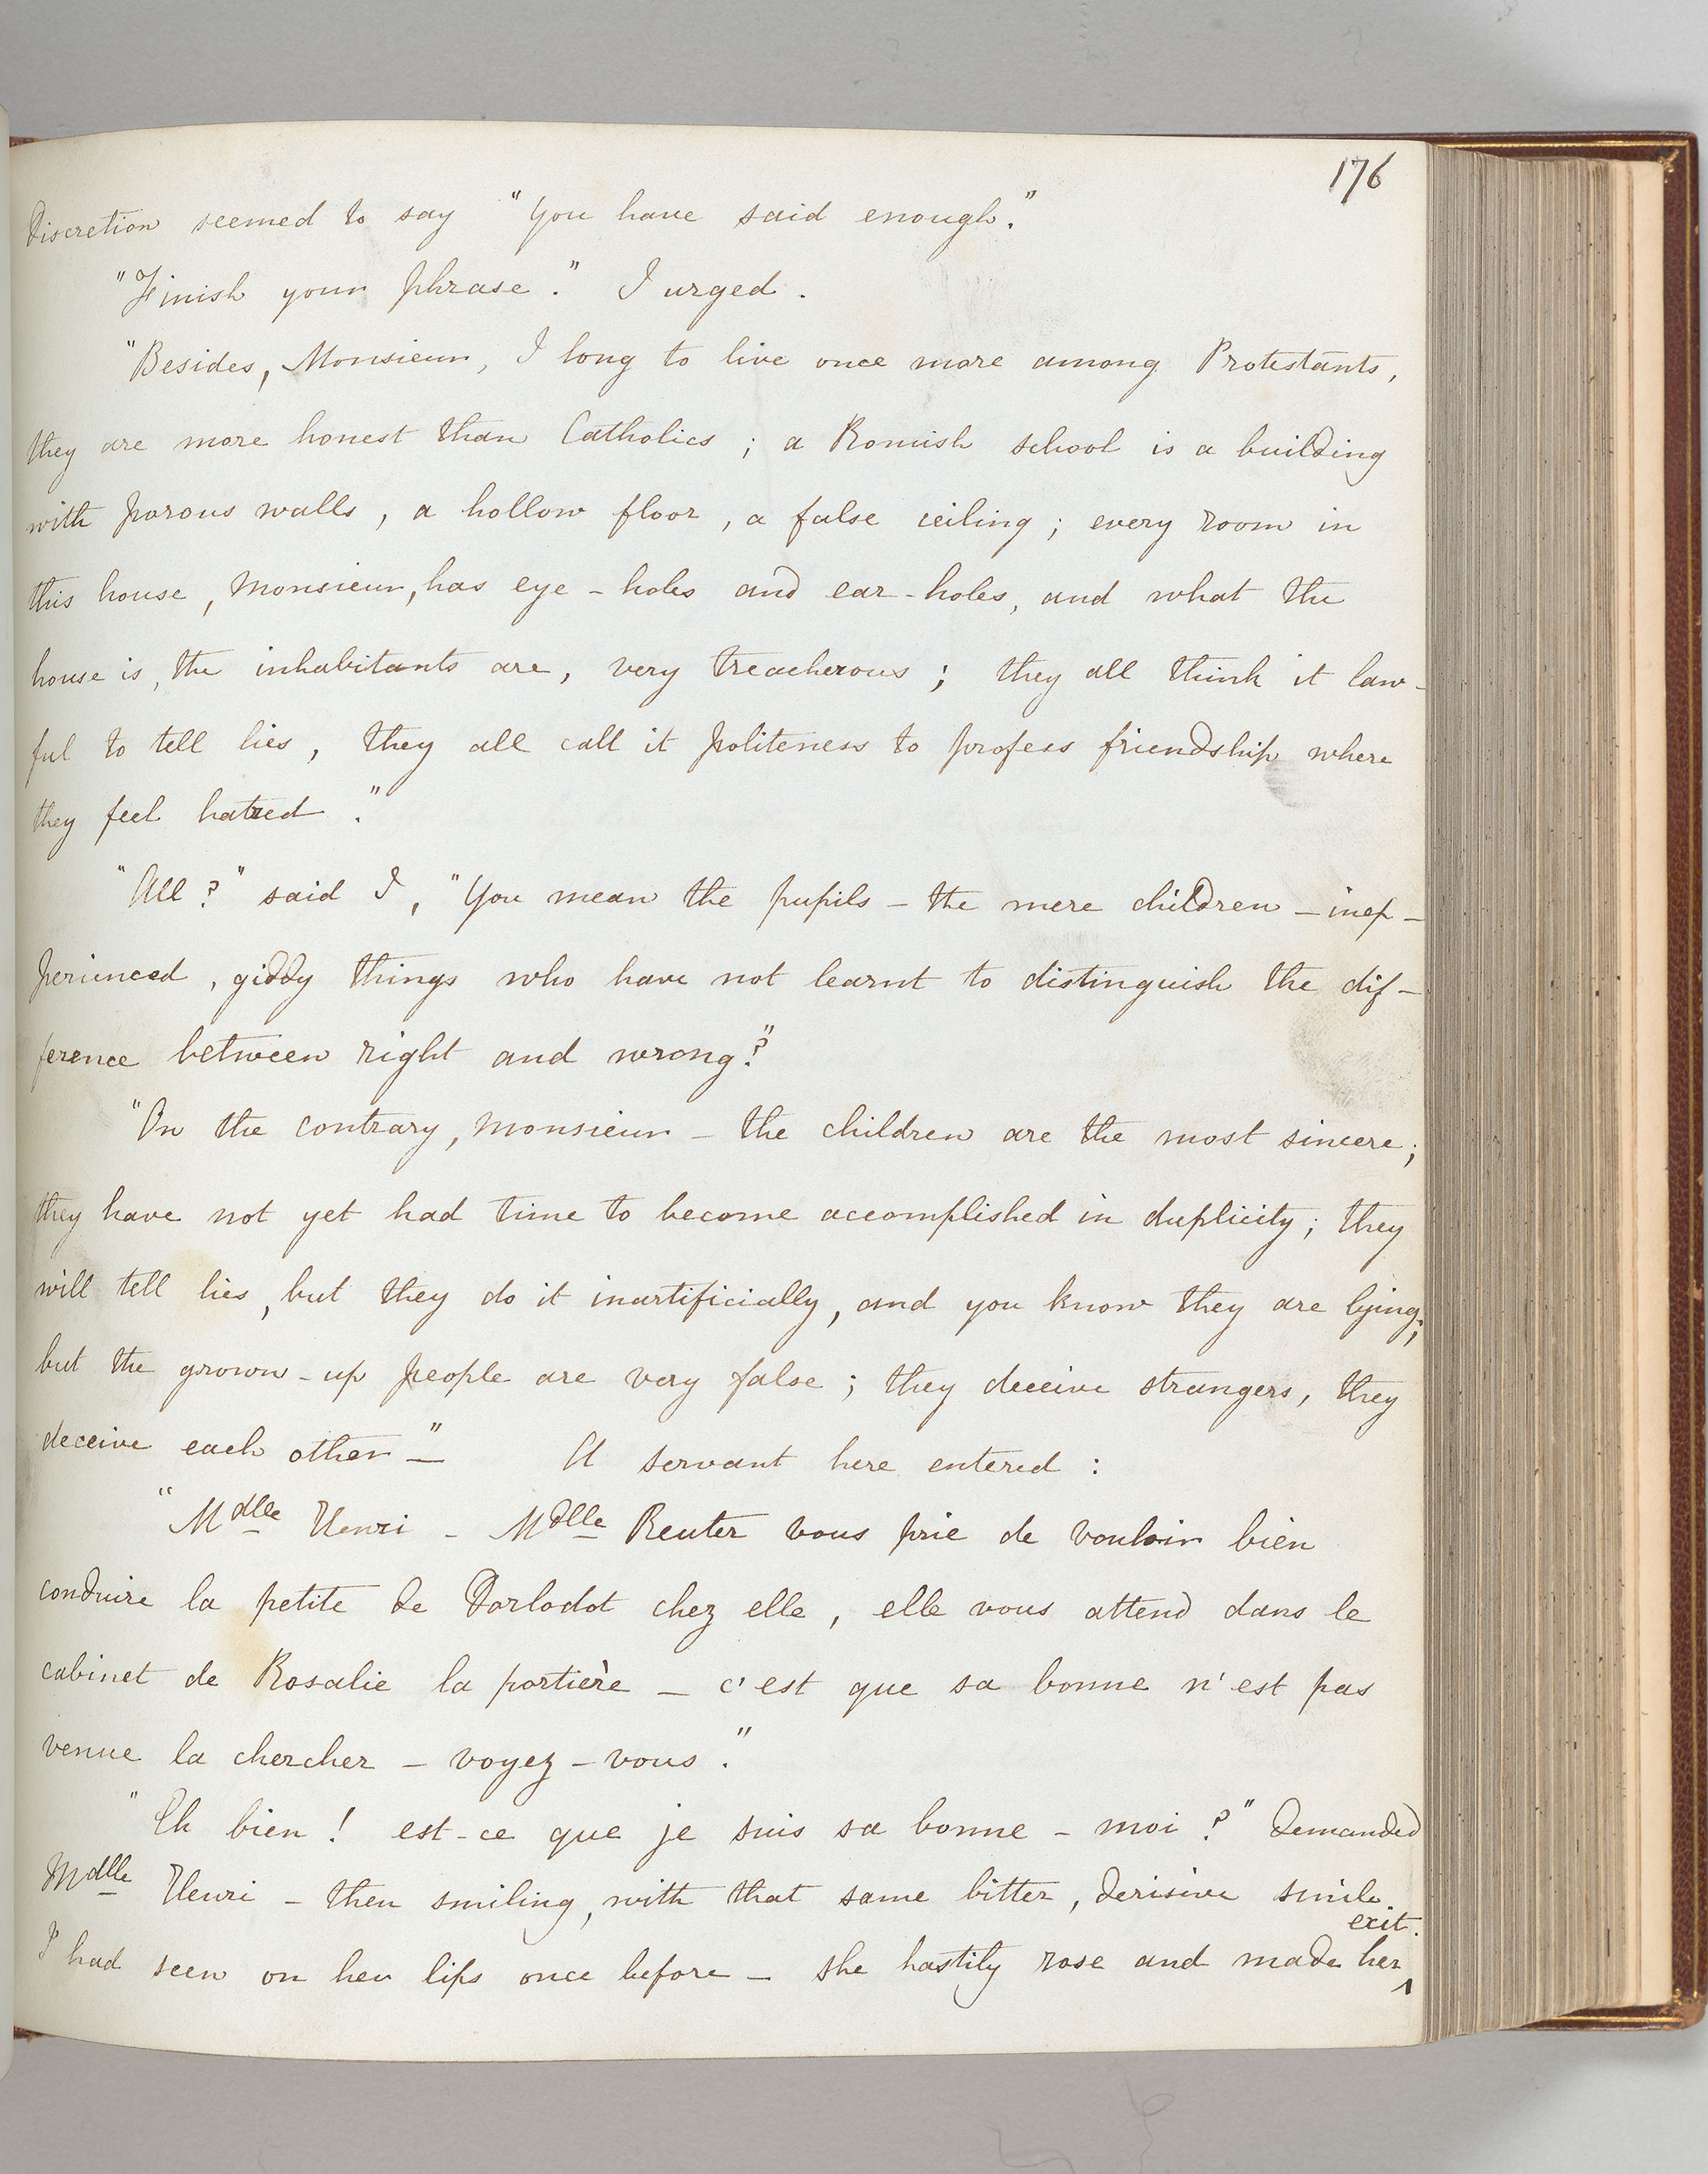 176
Discretion seemed to say "You have said enough."
"Finish your phrase." I urged.
"Besides, Monsieur, I long to live once more among Protestants,
they are more honest than Catholics; a Romish school is a building
with porous walls, a hollow floor, a false ceiling; every room in
this house, Monsieur, has eye-holes and ear-holes, and what the
house is, the inhabitants are, very treacherous; they all think it law-
ful to tell lies, they all call it politeness to profess friendship where
they feel hatred."
"All?" said I, "You mean the pupils - the mere children - inex-
perienced, giddy things who have not learnt to distinguish the dif-
ference between right and wrong?"
"On the contrary, Monsieur - the children are the most sincere;
they have not yet had time to become accomplished in duplicity; they
will tell lies, but they do it inartificially, and you know they are lying;
but the grown-up people are very false; they deceive strangers, they
deceive each other -" A servant here entered:
"Mdlle Henri - Mdlle Reuter vous prie de vouloir bien
conduire la petite de Dorlodot chez elle, elle vous attend dans le
cabinet de Rosalie la portière - c'est que sa bonne n'est pas
venue la chercher - voyez-vous."
"Eh bien! est-ce que je suis sa bonne - moi?" demanded
Mdlle Henri - then smiling, with that same bitter, derisive smile
I had seen on her lips once before - she hastily rose and made her exit.